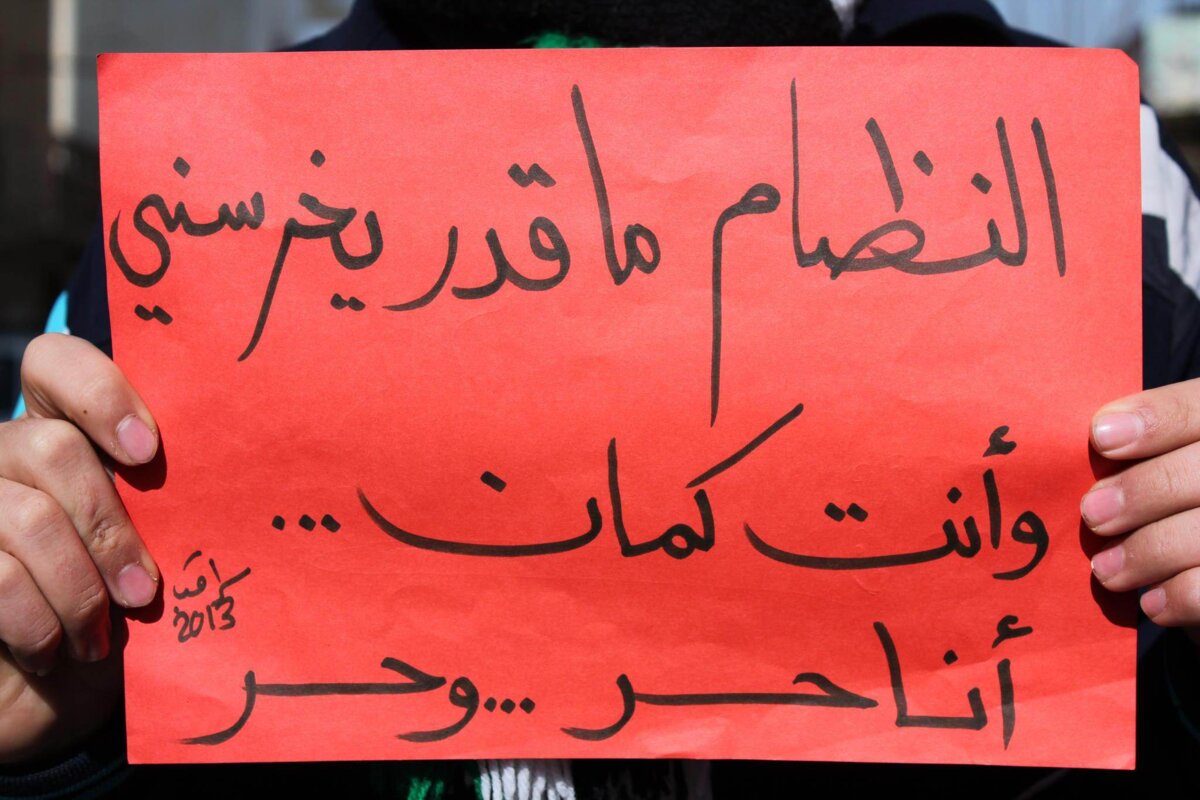 النظام ما قدر يخرسني
وأنت كمان ...
2013
أنا حر ...وحر